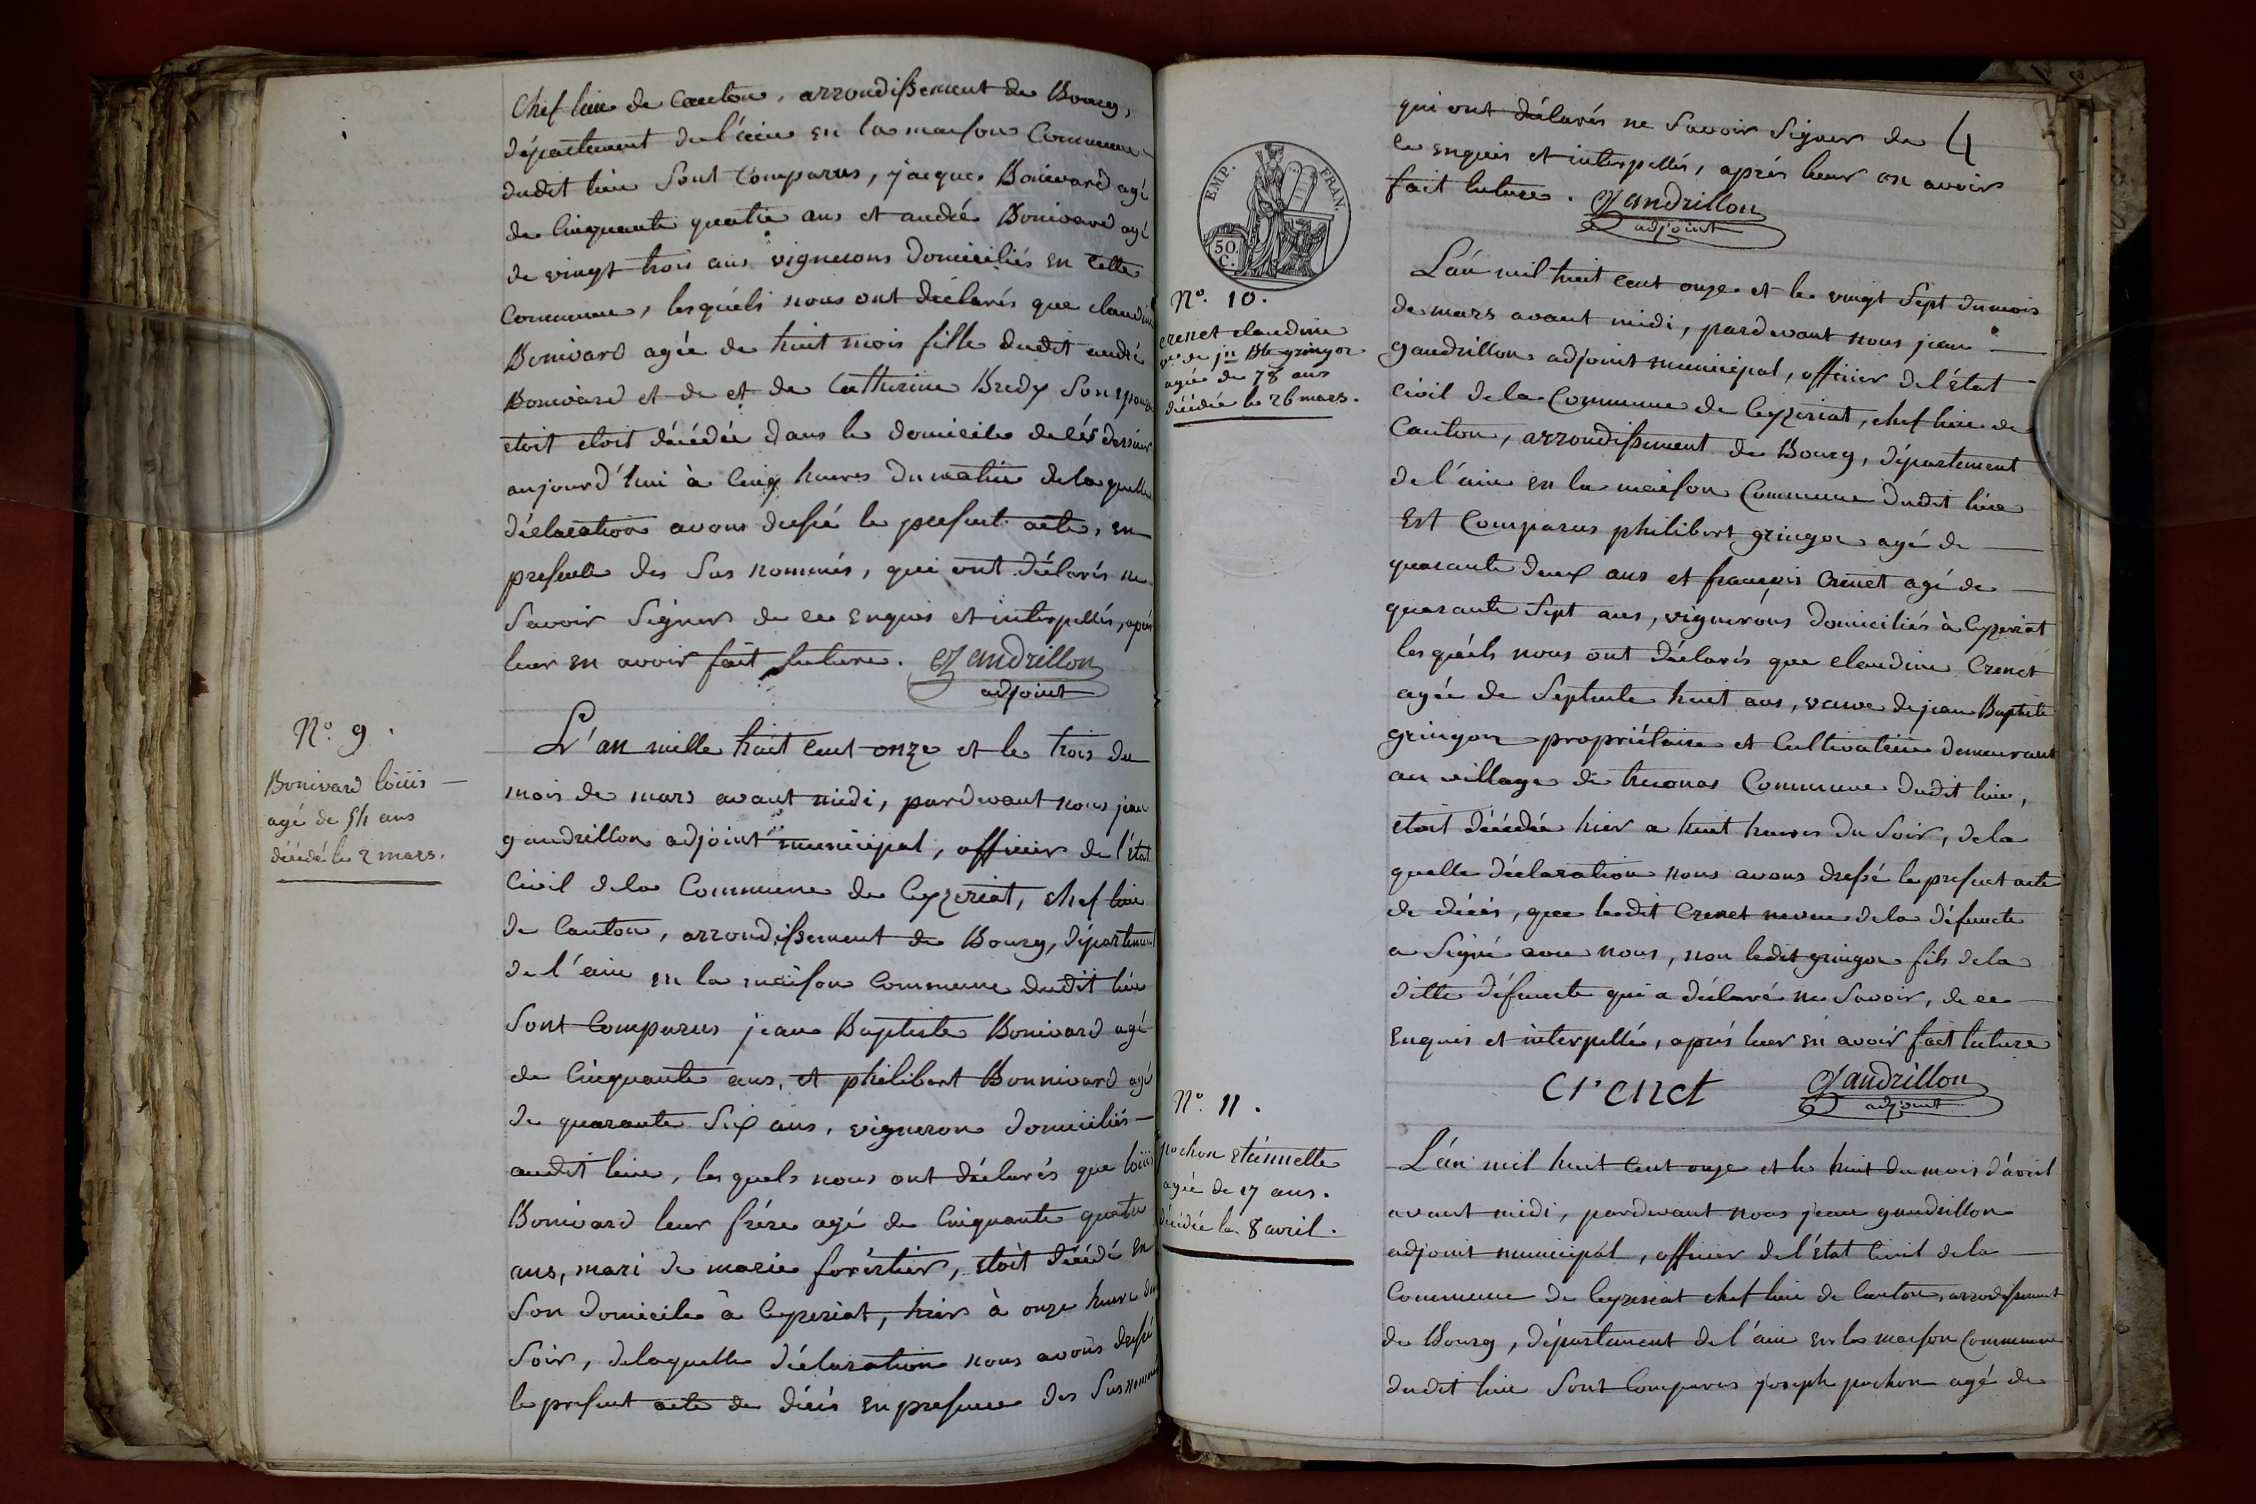 chef lieu de canton, arrondissement de Bourg,
département de l'ain en la maison Commune
dudit lieu Sont Comparus, jacques Bonivard agé
de Cinquante quatre ans et andré Bonivard agé
de vingt trois ans vignerons domiciliés en cette
Commune, lesquéls nous ont déclarés que claudine
Bonivard agée de huit mois fille dudit andré
Bonivard et de et de Catherine Bredy Son épouse
etoit etoit décédée dans le domicile de cés derniers
aujourd'hui à Cinq heures du matin de laquelle
déclaration avons dressé le present acte, en
presence des Sus nommés, qui ont déclarés ne
Savoir Signer de ce enquis et interpellés, après
leur en avoir fait lecture. Gandrillon
adjoint
N.º 9.
Bonivard loüis
agé de 54 ans
décédé le 2 mars.
L'an mille huit Cent onze et le trois du
mois de mars avant midi, pardevant nous jean
gandrillon adjoint municipal, officier de l'état
Civil de la Commune de Ceyzeriat, chef lieu
de Canton, arrondissement de Bourg, département
de l'ain en la maison Commune dudit lieu
Sont Comparus jean Baptiste Bonivard agé
de Cinquante ans, et philibert Bonnivard agé
de quarante Six ans, vigneron domiciliés
audit lieu, lesquels nous ont déclarés que loüis
Bonivard leur frére agé de Cinquante quatre
ans, mari de marie foréstier, etoit décédé en
Son domicile à Ceyzeriat, hier à onze heure du
Soir, delaquelle déclaration nous avons dressé
le present acte de décés en presence des Sus nommés
4
qui ont déclarés ne Savoir Signer de
ce enquis et interpellés, aprés leur en avoir
fait lecture. Gandrillon
adjoint
EMP. FRAN.
50.
C.
Nº. 10.
crenet claudine
vve de jn Bte gringoz
agée de 78 ans
décédée le 26 mars.
L'an mil huit Cent onze et le vingt Sept du mois
de mars avant midi, pardevant nous jean
gandrillon adjoint municipal, officier de l'état
Civil de la Commune de Ceyzeriat, chef lieu de
Canton, arrondissement de Bourg, département
de l'ain en la maison Commune dudit lieu
Est Comparus philibert gringoz agé de
quarante deux ans et françois Crenet agé de
quarante Sept ans, vignerons domiciliés à Ceyzeriat
lesquéls nous ont déclarés que claudine Crenet
agée de Septente huit ans, veuve de jean Baptiste
gringoz propriétaire et Cultivatrice demeurant
au village de Commune dudit lieu,
etoit décédée hier a huit heures du Soir, de la
quelle déclaration nous avons dressé le present acte
de décés, que ledit Crenet neveu de la défuncte
a Signé avec nous, non ledit gringoz fils de la
ditte défuncte qui a déclaré ne Savoir, de ce
Enquis et interpellé, aprés leur en avoir fait lecture
crenet Gandrillon
adjoint
Nº. 11.
pochon etiennette
agée de 17 ans.
décédée le 8 avril.
L'an mil huit Cent onze et le huit du mois d'avril
avant midi, pardevant nous jean gandrillon
adjoint municipal, officier de l'état Civil de la
Commune de Ceyzeriat chef lieu de Canton, arrondissement
de Bourg, département de l'ain en la maison Commune
dudit lieu Sont Comparus joseph pochon agé de